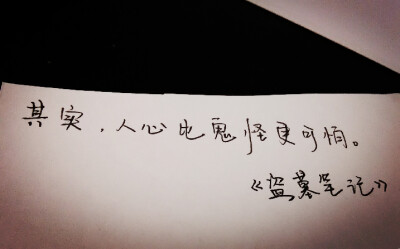 其实，人心比鬼怪更可怕。
《盗墓笔记》